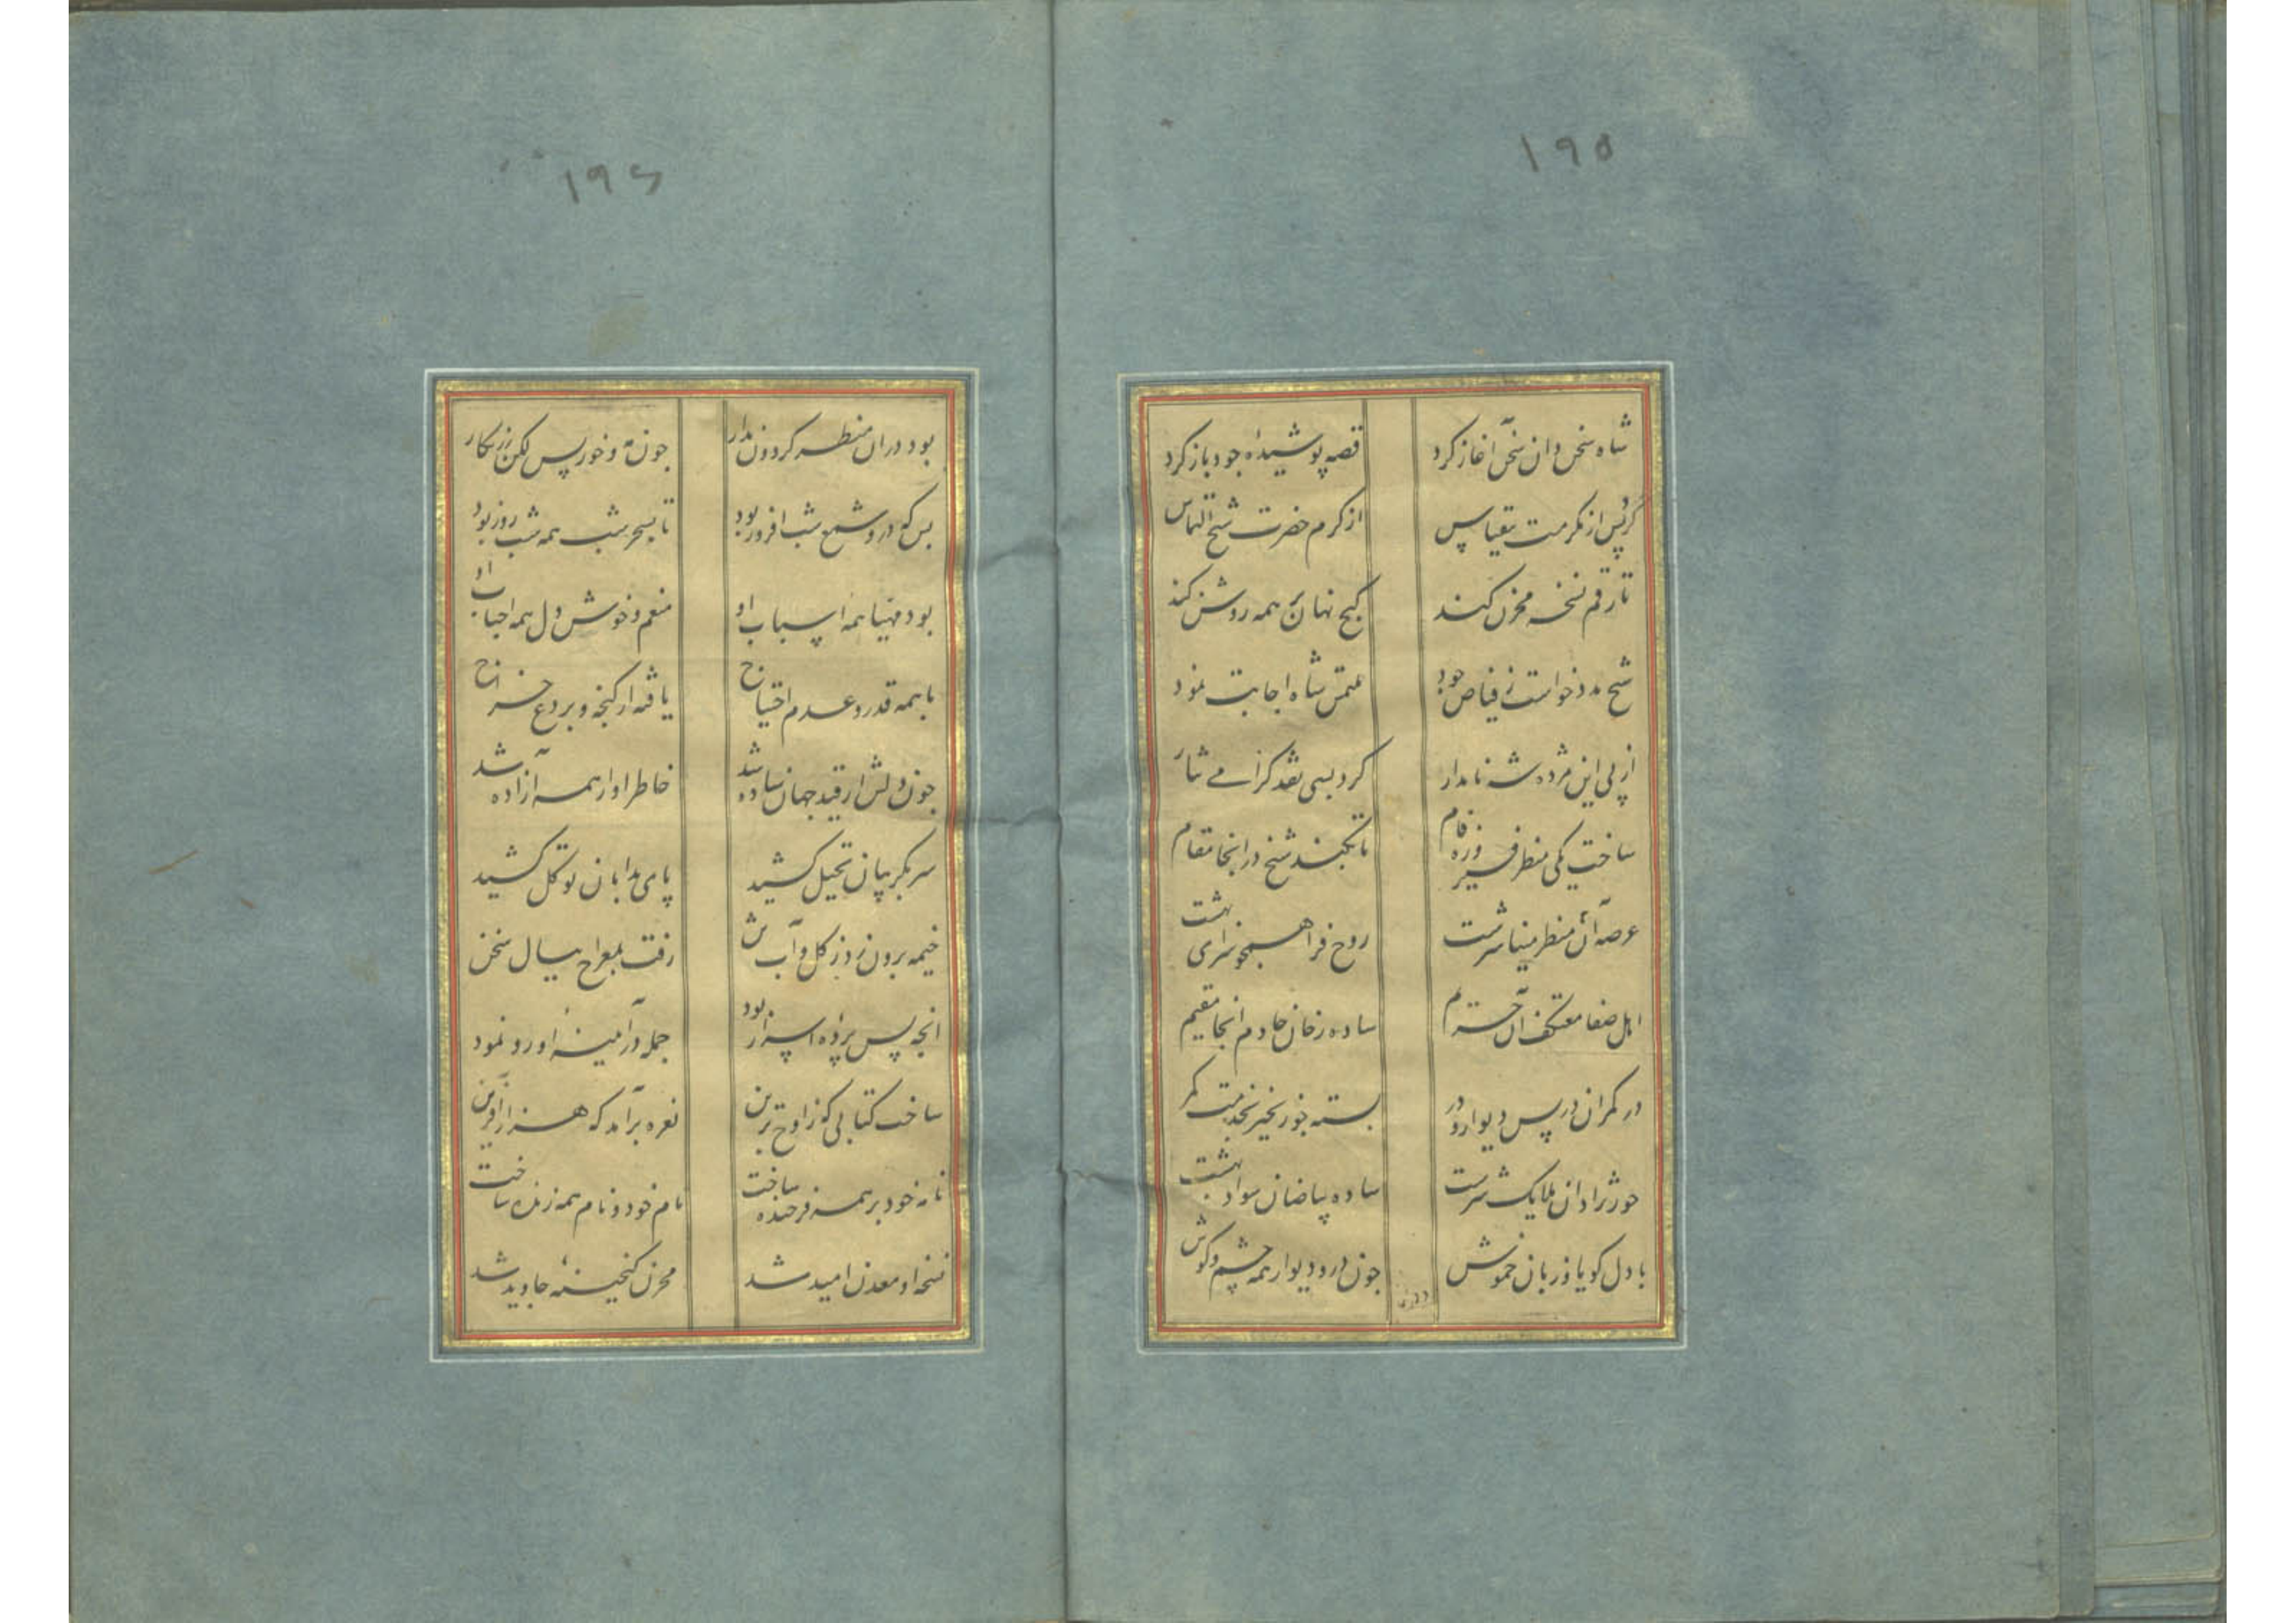 ۱۹۵
شاه سخن دان سخن آغاز کرد قصه پوشیدهٔ خود باز کرد
کرد پس از مکرمت بیقیاس از کرم حضرت شیخ التماس
تا رقم نسخه مخزن کند کنج نهان بر همه روشن کند
شیخ مدد خواست ز فیاض جود ملتمس شاه اجابت نمود
از پی این مژده شه نامدار کرد بسی نقد گرامی نثار
ساخت یکی منظر فیروزه فام تا بکند شیخ در انجا مقام
عرصه آن منظر مینا سرشت روح فزا همچو سرای بهشت
اهل صفا معتکف آن حریم ساده رخان خادم انجا مقیم
در کمران در پس دیوار و در بسته چو زنجیر بخدمت کمر
حور نژادان ملایک سرشت ساده بیاضان سواد بهشت
با دل کویا و زبان خموش چون در و دیوار همه چشم و کوش
۱۹۶
بود در ان منظر کردون مدار چون مه و خور پس لکن زرنکار
بس که درو شمع شب افروز بود تا بسحر شب همه شب روز بود
بود مهیا همه اسباب او منعم و خوش دل همه احباب او
با همه قدر و عدم احتیاج یافته از کنجه و بردع خراج
چون دلش از قید جهان ساده شد خاطر او از همه آزاده شد
سر بکریبان تخیل کشید پای بدامان توکل کشید
خیمه برون زد ز کل و آب تن رفت بمعراج خیال سخن
انچه پس پرده اسرار بود جمله در آمینهٔ او رو نمود
ساخت کتابی که ز اوج برین نعره برآمد که هزار آفرین
نامه خود بر همه فرخنده ساخت نام خود و نام همه زنده ساخت
نسخه او معدن امید شد مخزن کنجینهٔ جاوید شد